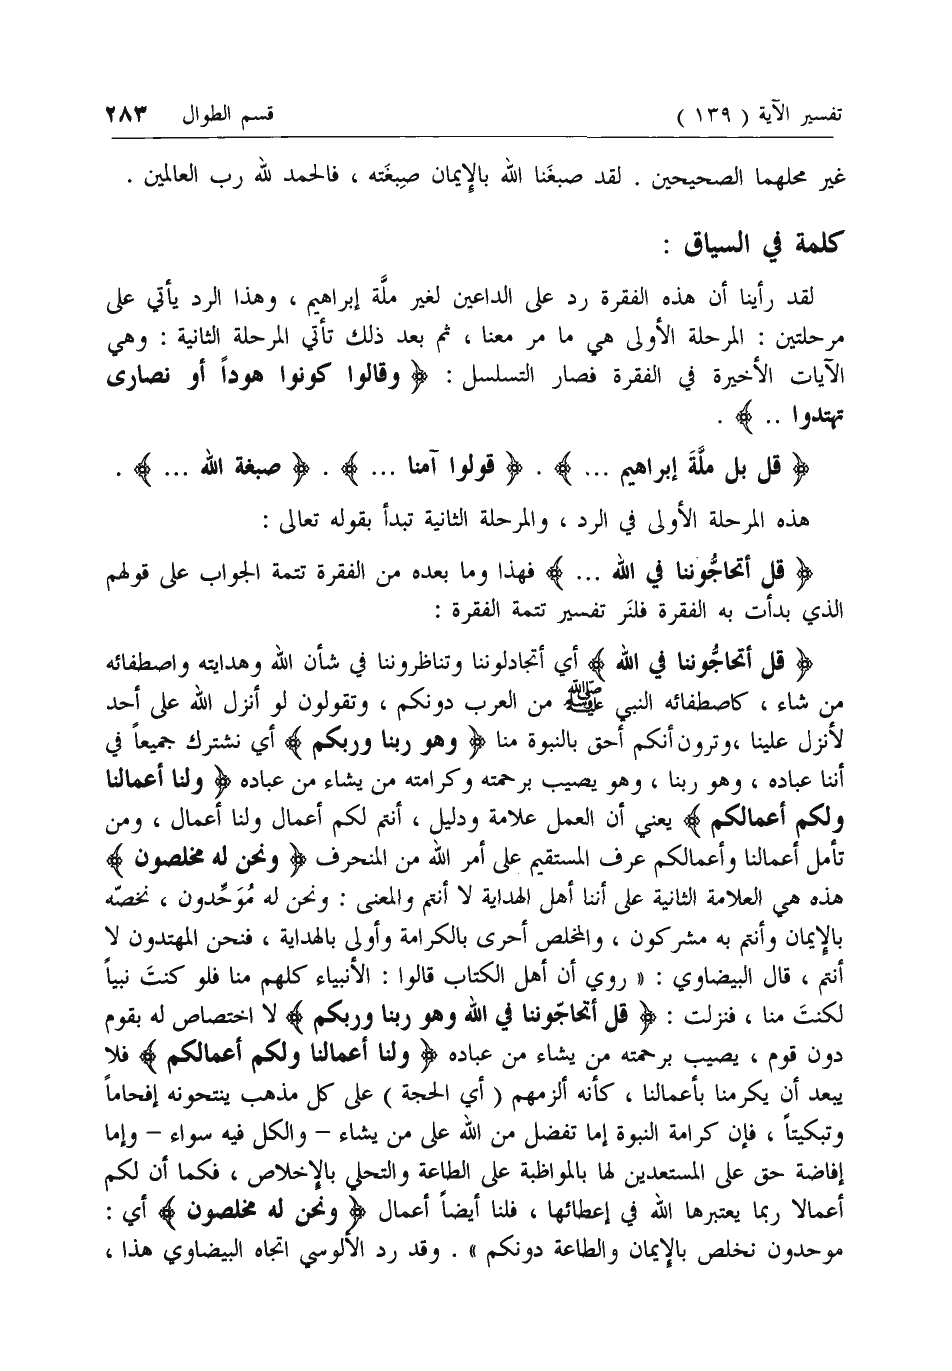 تفسير الآية ( ١٣٩ ) قسم الطوال ٢٨٣
غير محلهما الصحيحين . لقد صبغَنا الله بالإيمان صبِغَته ، فالحمد لله رب العالمين .
كلمة في السياق :
لقد رأينا أن هذه الفقرة رد على الداعين لغير ملَّة إبراهيم ، وهذا الرد يأتي على
مرحلتين : المرحلة الأولى هي ما مر معنا ، ثم بعد ذلك تأتي المرحلة الثانية : وهي
الآيات الأخيرة في الفقرة فصار التسلسل : ﴿ وقالوا كونوا هوداً أو نصارى
تهتدوا .. ﴾ .
﴿ قل بل ملَّةَ إبراهيم ... ﴾ . ﴿ قولوا آمنا ... ﴾ . ﴿ صبغة الله ... ﴾ .
هذه المرحلة الأولى في الرد ، والمرحلة الثانية تبدأ بقوله تعالى :
﴿ قل أتحاجُّوننا في الله ... ﴾ فهذا وما بعده من الفقرة تتمة الجواب على قولهم
الذي بدأت به الفقرة فلنَر تفسير تتمة الفقرة :
﴿ قل أتحاجُّوننا في الله ﴾ أي أتجادلوننا وتناظروننا في شأن الله وهدايته واصطفائه
من شاء ، كاصطفائه النبي ﷺ من العرب دونكم ، وتقولون لو أنزل الله على أحد
لأنزل علينا ،وترون أنكم أحق بالنبوة منا ﴿ وهو ربنا وربكم ﴾ أي نشترك جميعاً في
أننا عباده ، وهو ربنا ، وهو يصيب برحمته وكرامته من يشاء من عباده ﴿ ولنا أعمالنا
ولكم أعمالكم ﴾ يعني أن العمل علامة ودليل ، أنتم لكم أعمال ولنا أعمال ، ومن
تأمل أعمالنا وأعمالكم عرف المستقيم على أمر الله من المنحرف ﴿ ونحن له مخلصون ﴾
هذه هي العلامة الثانية على أننا أهل الهداية لا أنتم والمعنى : ونحن له مُوَحِّدون ، نخصّه
بالإيمان وأنتم به مشركون ، والمخلص أحرى بالكرامة وأولى بالهداية ، فنحن المهتدون لا
أنتم ، قال البيضاوي : « روي أن أهل الكتاب قالوا : الأنبياء كلهم منا فلو كنتَ نبياً
لكنتَ منا ، فنزلت : ﴿ قل أتحاجّوننا في الله وهو ربنا وربكم ﴾ لا اختصاص له بقوم
دون قوم ، يصيب برحمته من يشاء من عباده ﴿ ولنا أعمالنا ولكم أعمالكم ﴾ فلا
يبعد أن يكرمنا بأعمالنا ، كأنه ألزمهم ( أي الحجة ) على كل مذهب ينتحونه إفحاماً
وتبكيتاً ، فإن كرامة النبوة إما تفضل من الله على من يشاء – والكل فيه سواء – وإما
إفاضة حق على المستعدين لها بالمواظبة على الطاعة والتحلي بالإخلاص ، فكما أن لكم
أعمالا ربما يعتبرها الله في إعطائها ، فلنا أيضاً أعمال ﴿ ونحن له مخلصون ﴾ أي :
موحدون نخلص بالإيمان والطاعة دونكم » . وقد رد الألوسي اتجاه البيضاوي هذا ،